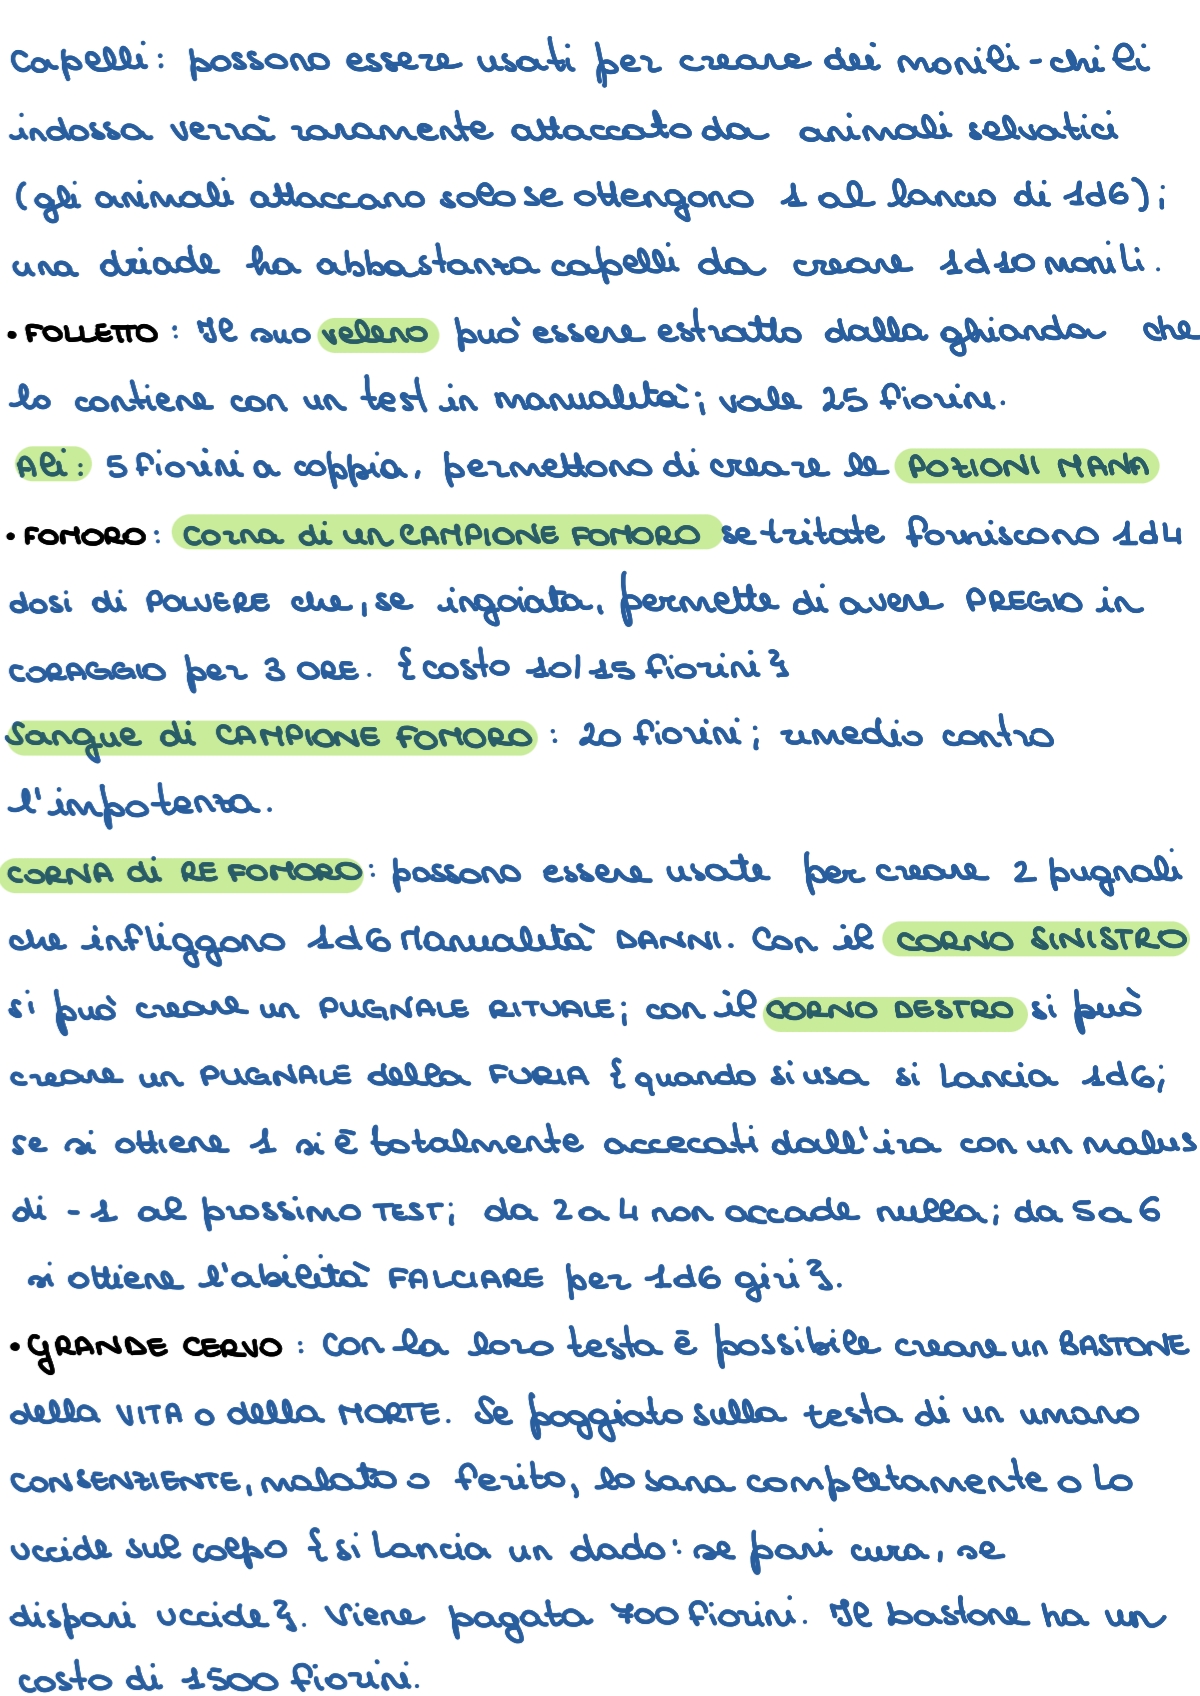 Capelli: possono essere usati per creare dei monili - chi li
indossa verrà raramente attaccato da animali selvatici
(gli animali attaccano solo se ottengono 1 al lancio di 1d6);
una driade ha abbastanza capelli da creare 1d10 monili.
• FOLLETTO: Il suo veleno può essere estratto dalla ghianda che
lo contiene con un test in manualità; vale 25 fiorini.
Ali: 5 fiorini a coppia, permettono di creare le POZIONI MANA
• FOMORO: Corna di un CAMPIONE FOMORO se tritate forniscono 1d4
dosi di POLVERE che, se ingoiata, permette di avere PREGIO in
CORAGGIO per 3 ORE. {costo 10/15 fiorini}
Sangue di CAMPIONE FOMORO: 20 fiorini; rimedio contro
l'impotenza.
CORNA di RE FOMORO: possono essere usate per creare 2 pugnali
che infliggono 1d6 Manualità DANNI. Con il CORNO SINISTRO
si può creare un PUGNALE RITUALE; con il CORNO DESTRO si può
creare un PUGNALE della FURIA {quando si usa si lancia 1d6;
se si ottiene 1 si è totalmente accecati dall'ira con un malus
di -1 al prossimo TEST; da 2 a 4 non accade nulla; da 5 a 6
si ottiene l'abilità FALCIARE per 1d6 giri}.
• GRANDE CERVO: Con la loro testa è possibile creare un BASTONE
della VITA o della MORTE. Se poggiato sulla testa di un umano
CONSENZIENTE, malato o ferito, lo sana completamente o lo
uccide sul colpo {si lancia un dado: se pari cura, se
dispari uccide}. Viene pagata 700 fiorini. Il bastone ha un
costo di 1500 fiorini.